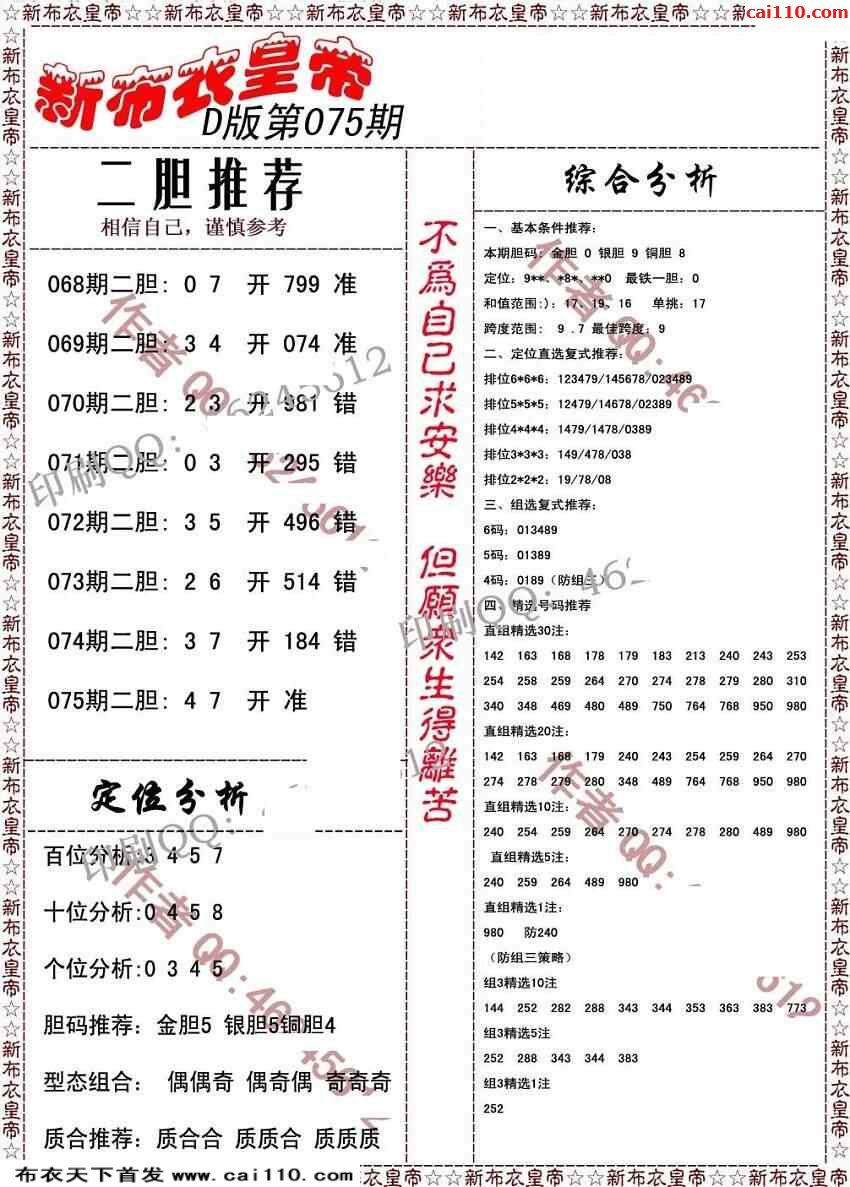 ☆新布衣皇帝☆☆新布衣皇帝☆☆新布衣皇帝☆☆新布衣皇帝☆☆新布衣皇帝☆☆新
cai110.com
新布衣皇帝
D版第075期
二胆推荐
相信自己，谨慎参考
068期二胆: 0 7 开 799 准
069期二胆: 3 4 开 074 准
070期二胆: 2 3 开 981 错
071期二胆: 0 3 开 295 错
072期二胆: 3 5 开 496 错
073期二胆: 2 6 开 514 错
074期二胆: 3 7 开 184 错
075期二胆: 4 7 开 准
定位分析
百位分析:3 4 5 7
十位分析:0 4 5 8
个位分析:0 3 4 5
胆码推荐: 金胆5 银胆5铜胆4
型态组合: 偶偶奇 偶奇偶 奇奇奇
质合推荐: 质合合 质质合 质质质
不為自己求安樂 但願衆生得離苦
综合分析
一、基本条件推荐:
本期胆码: 金胆 0 银胆 9 铜胆 8
定位: 9**、*8*、**0 最铁一胆: 0
和值范围:): 17、19、16 单挑: 17
跨度范围: 9 .7 最佳跨度: 9
二、定位直选复式推荐:
排位6*6*6: 123479/145678/023489
排位5*5*5: 12479/14678/02389
排位4*4*4: 1479/1478/0389
排位3*3*3: 149/478/038
排位2*2*2: 19/78/08
三、组选复式推荐:
6码: 013489
5码: 01389
4码: 0189（防组三）
四、精选号码推荐
直组精选30注:
142 163 168 178 179 183 213 240 243 253
254 258 259 264 270 274 278 279 280 310
340 348 469 480 489 750 764 768 950 980
直组精选20注:
142 163 168 179 240 243 254 259 264 270
274 278 279 280 348 489 764 768 950 980
直组精选10注:
240 254 259 264 270 274 278 280 489 980
直组精选5注:
240 259 264 489 980
直组精选1注:
980 防240
（防组三策略）
组3精选10注
144 252 282 288 343 344 353 363 383 773
组3精选5注
252 288 343 344 383
组3精选1注
252
布衣天下首发 www.cai110.com
衣皇帝☆☆新布衣皇帝☆☆新布衣皇帝☆☆新布衣皇帝☆